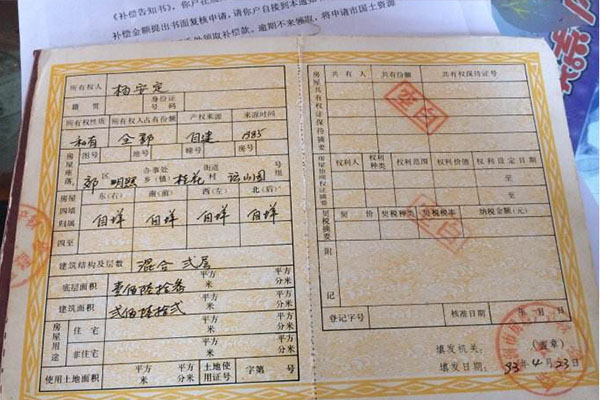 《补偿告知书》，你户在
补偿金额提出书面复核申请，请你户自接到本通知
领取补偿款，逾期不来领取，将申请市国土资源
所有权人 杨安定
籍贯 身份证号码
所有权性质 所有权人占有份额 产权来源 来源时间
私有 全部 自建 1985
房屋座落 图号 地号 幢号 房号
郊区 明照 办事处 乡(镇) 桂花 街道 村 号 组
房屋四墙归属 东(右) 南(前) 西(左) 北(后)
自墙 自墙 自墙 自墙
四至
建筑结构及层数 混合 弍层
底层面积 壹佰陆拾叁 平方米 平方分米
建筑面积 弍佰陆拾弍 平方米 平方分米
房屋用途 住宅 平方米 平方分米
非住宅 平方米 平方分米
使用土地面积 平方米 平方分米 土地使用证号 字第 号
房屋共有权保持证摘要 共有人 共有份额 共有权保持证号
空白
房屋他项权证摘要 权利人 权利种类 权利范围 权利价值 权利设定日期
至
至
契税摘要 契价 契税种类 契税税率 纳税金额(元)
空白
附记
登记字号 核准日期 年 月 日
填发机关： (盖章)
填发日期： 93年4月23日